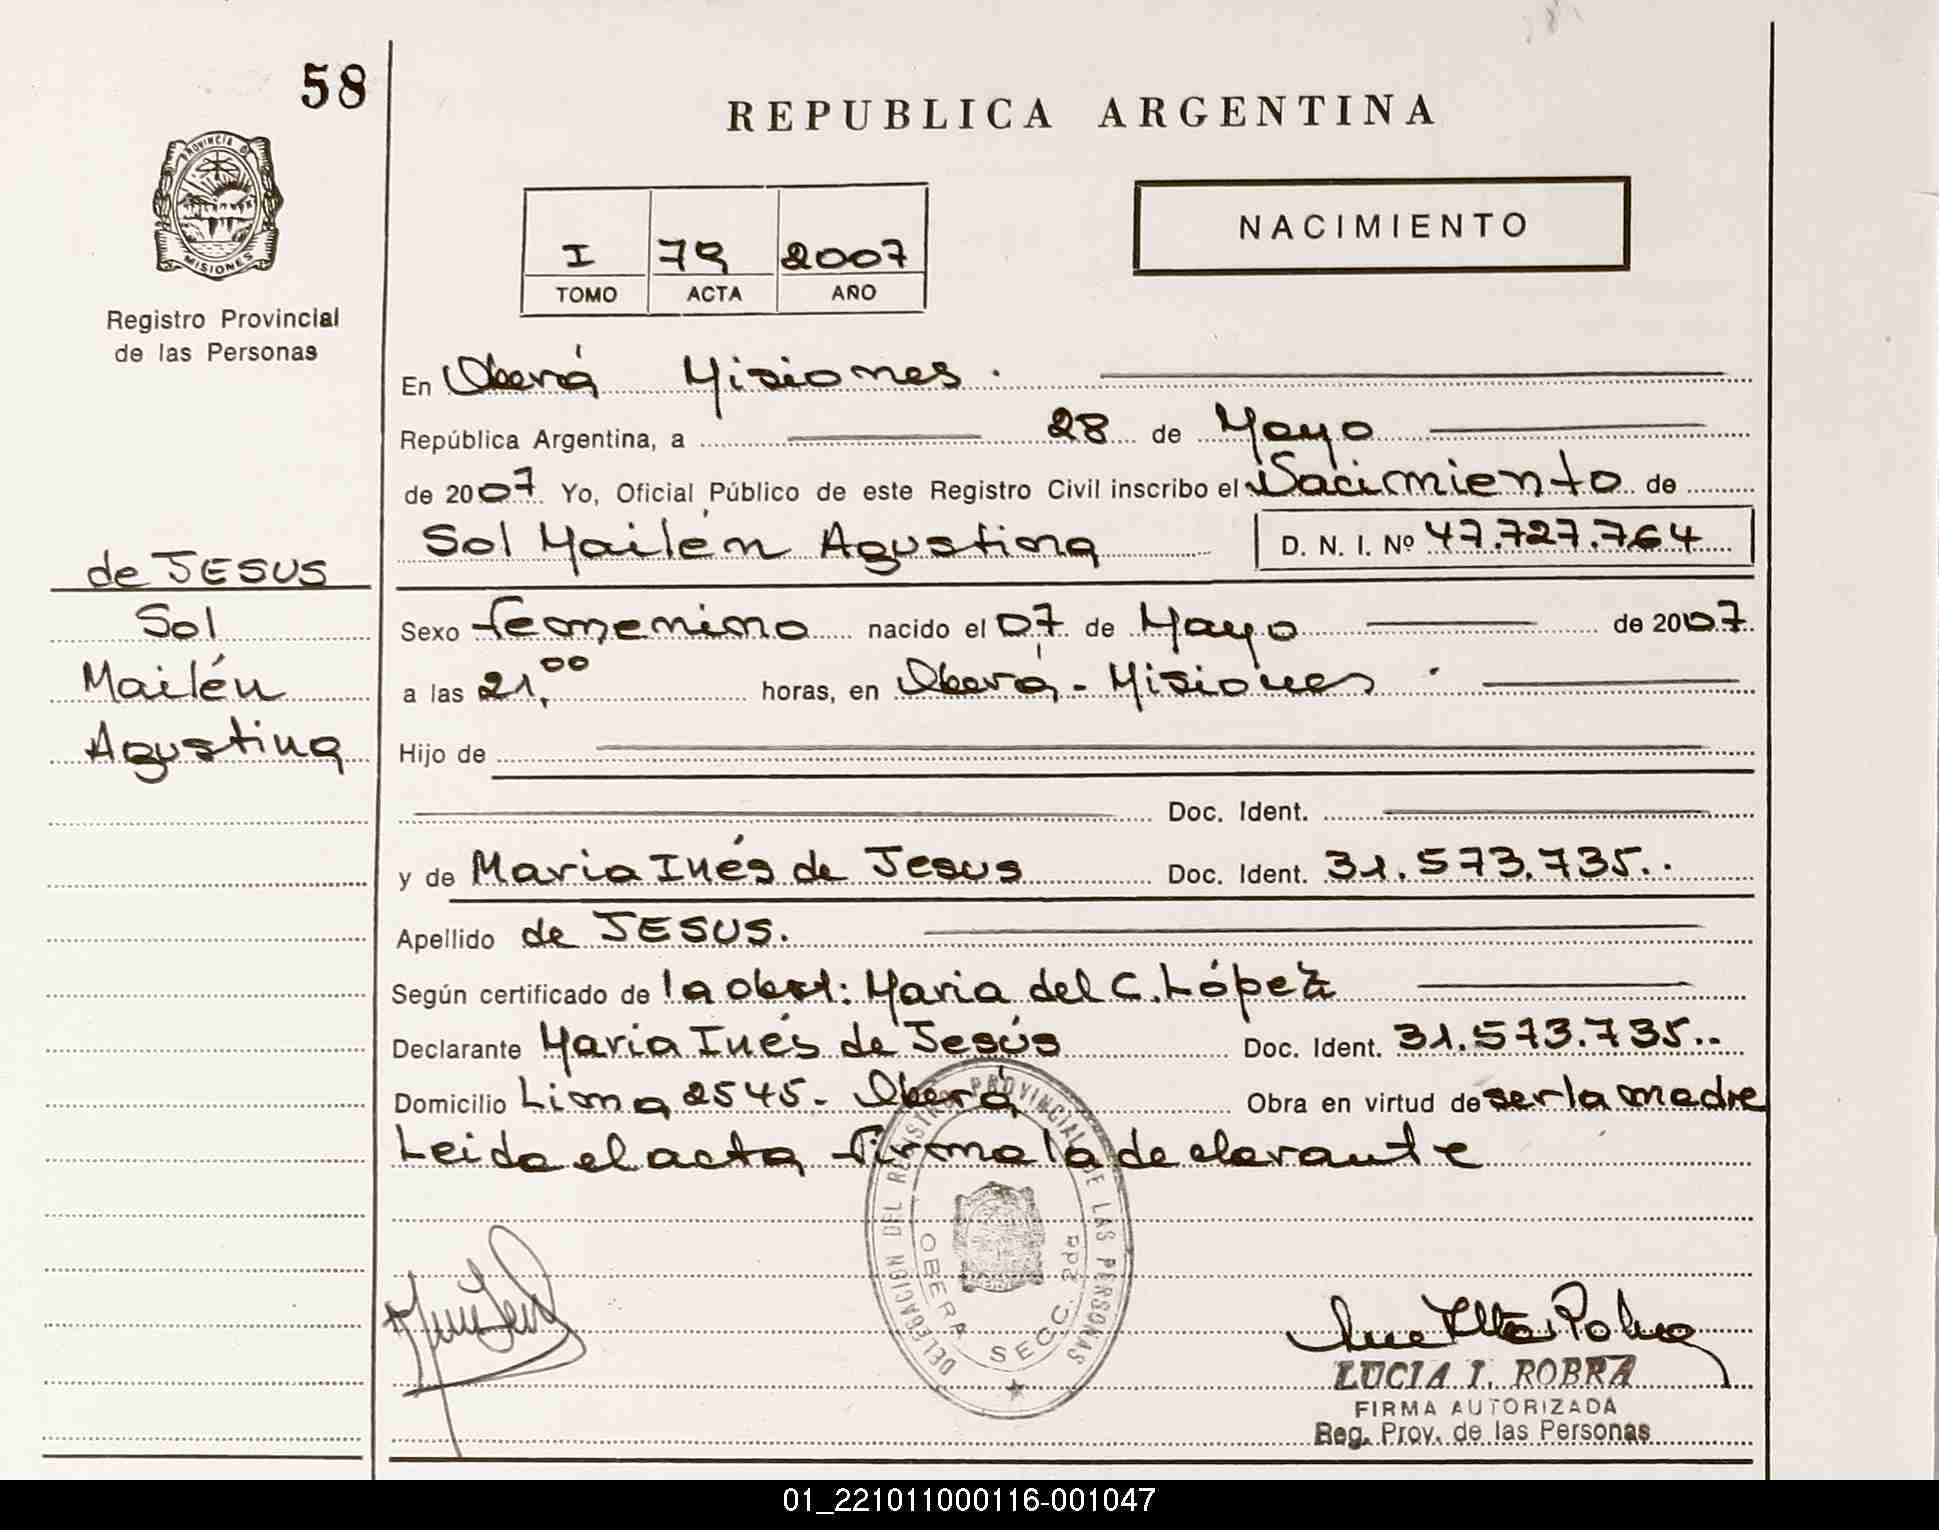 58
REPUBLICA ARGENTINA
PROVINCIA D
MISIONES
Registro Provincial
de las Personas
NACIMIENTO
I 79 2007
TOMO ACTA AÑO
En Oberá Misiones.
República Argentina, a 28 de Mayo
de 2007 Yo, Oficial Público de este Registro Civil inscribo el Nacimiento de
Sol Mailén Agustina D. N. I. Nº 47.727.764
de JESUS
Sol
Mailén
Agustina
Sexo femenino nacido el 07 de Mayo de 2007.
a las 21,00 horas, en Oberá - Misiones.
Hijo de
Doc. Ident.
y de Maria Inés de Jesus Doc. Ident. 31.573.735..
Apellido de JESUS.
Según certificado de la obst: Maria del C. López
Declarante Maria Inés de Jesús Doc. Ident. 31.573.735..
Domicilio Lima 2545. Oberá Obra en virtud de ser la madre
Leida el acta firma la declarante
DELEGACION DEL REGISTRO PROVINCIAL DE LAS PERSONAS
OBERA SECC. 2da
LUCIA I. ROBRA
FIRMA AUTORIZADA
Reg. Prov. de las Personas
01_221011000116-001047